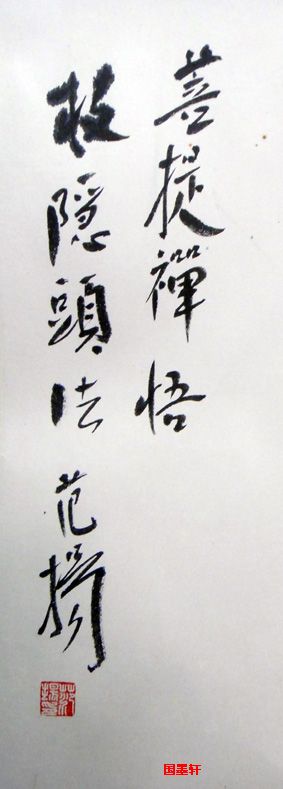 菩提禪悟
枝隱頭法 范揚
国墨轩